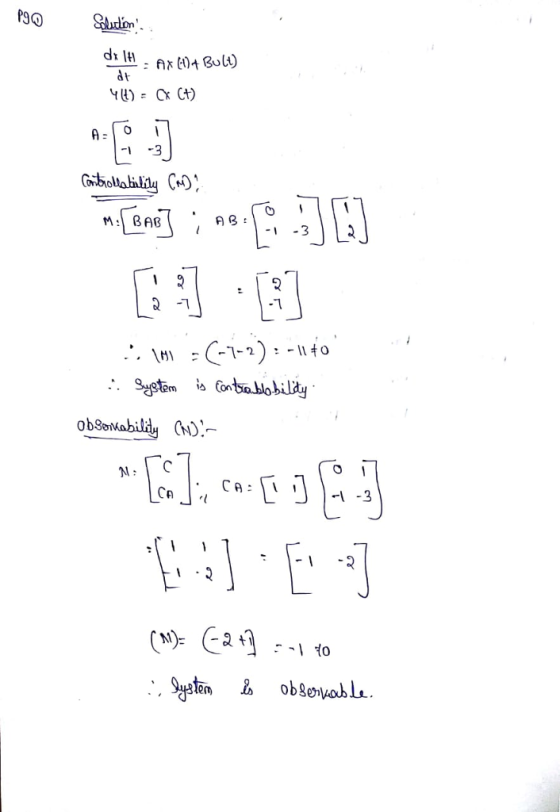 Pg ①
Solution:-
dx(t)/dt = Ax(t) + Bu(t)
Y(t) = Cx(t)
A = [0 1; -1 -3]
Controllability (M):
M: [B AB] ; AB: [0 1; -1 -3] [1; 2]
[1 2; 2 -7] = [2; -7]
∴ |M| = (-7-2) = -11 ≠ 0
∴ System is Controllability.
Observability (N):-
N: [C; CA] ; CA = [1 1] [0 1; -1 -3]
= [1 1; -1 -2] = [-1 -2]
(N) = (-2+1] = -1 ≠0
∴ System is observable.